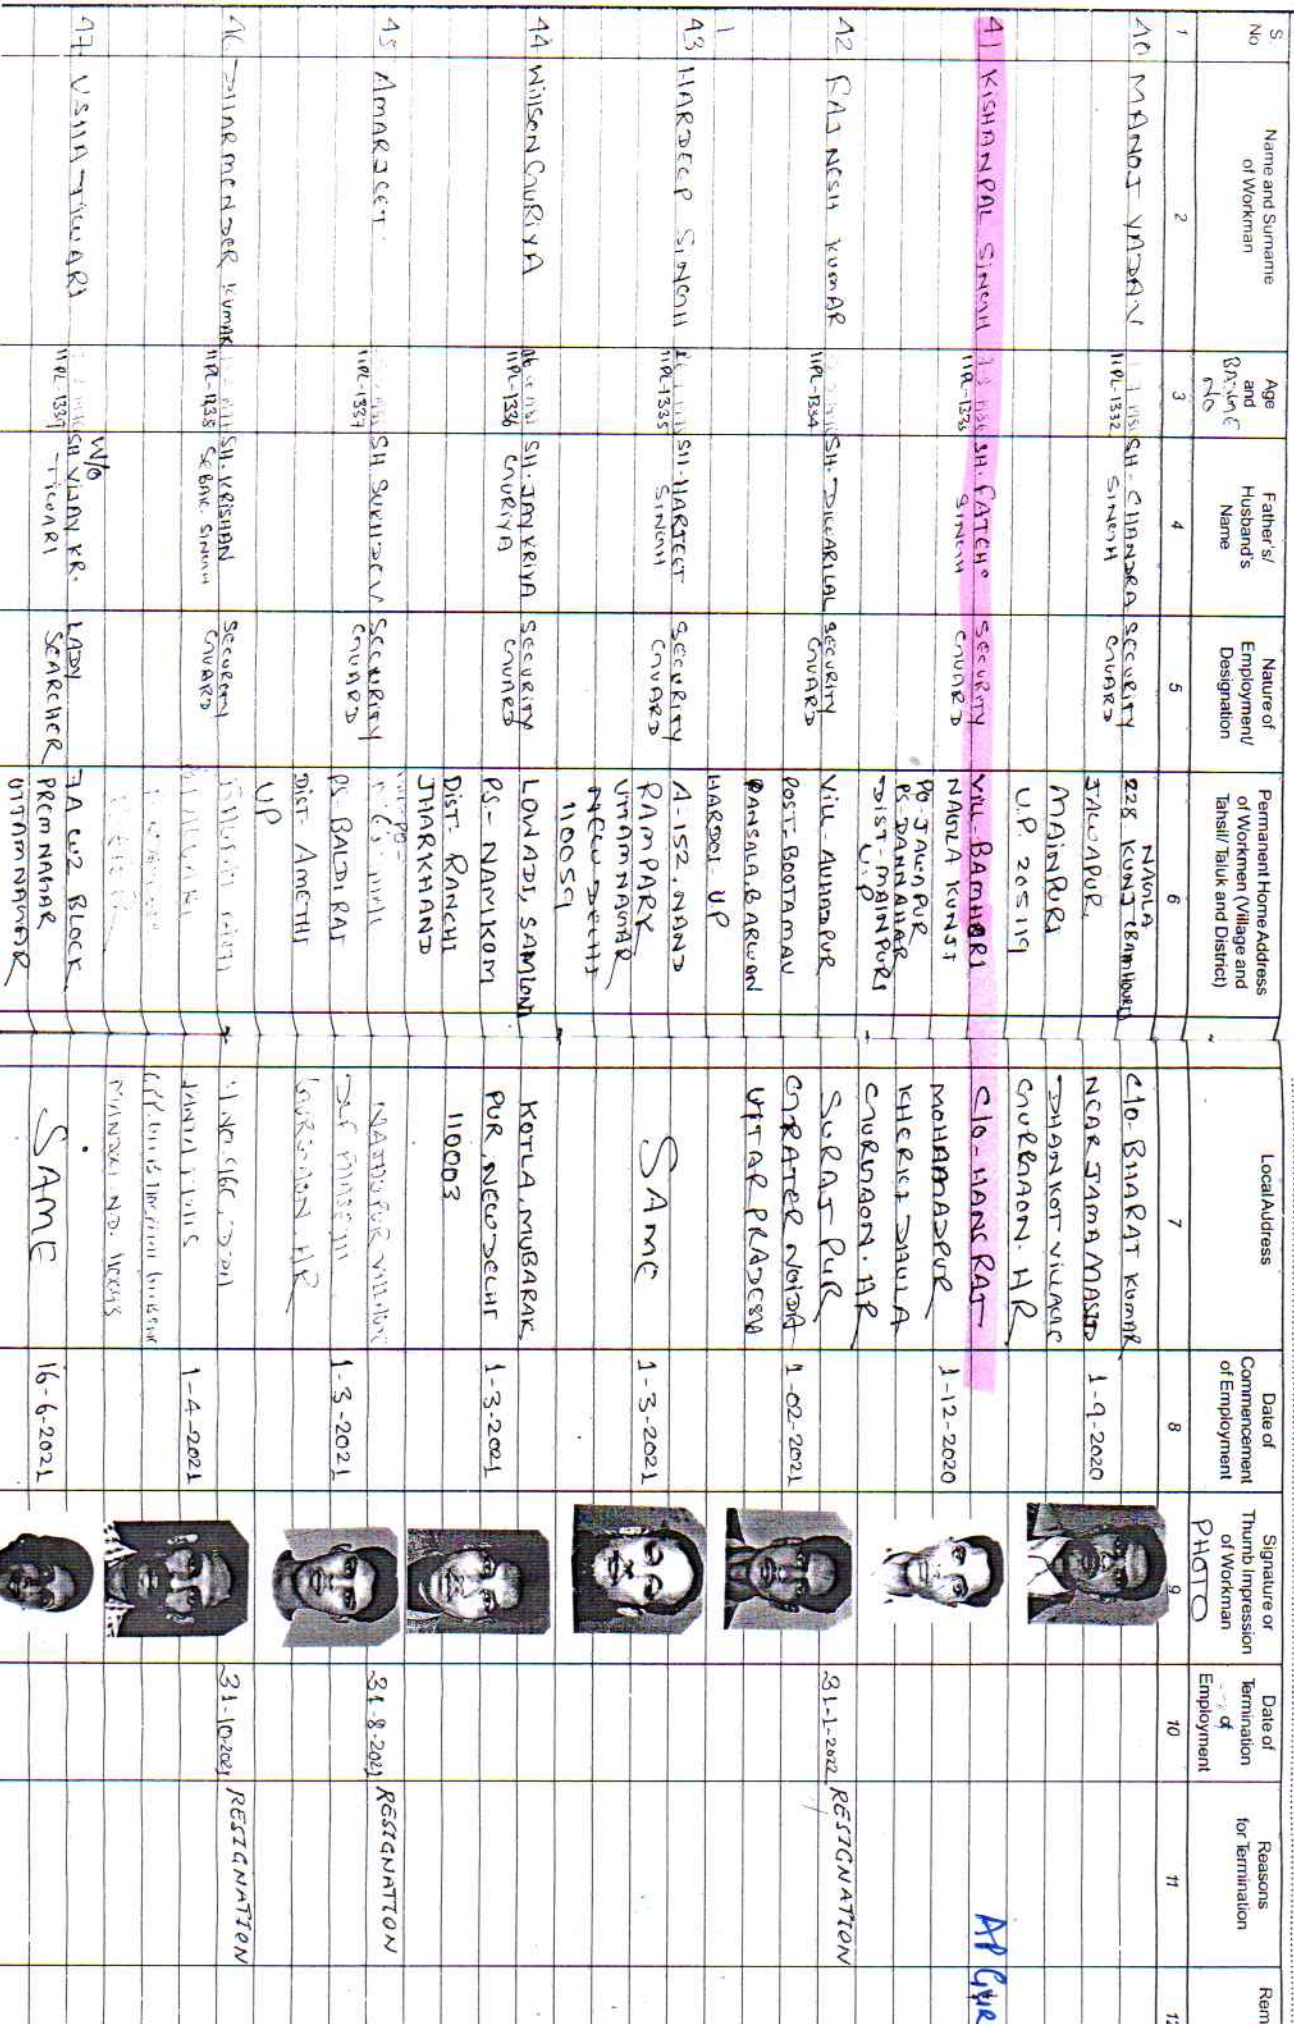 S. No
Name and Surname of Workman
Age and BADGE NO
Father's/ Husband's Name
Nature of Employment/ Designation
Permanent Home Address of Workmen (Village and Tahsil/ Taluk and District)
Local Address
Date of Commencement of Employment
Signature or Thumb Impression of Workman PHOTO
Date of Termination of Employment
Reasons for Termination
Rem
1 2 3 4 5 6 7 8 9 10 11 12
40 MANOJ YADAV
IIPL-1332
SH. CHANDRA
SINGH
SECURITY
GUARD
NAGLA
228 KUNJ (BAMHOURI)
JAWAPUR,
MAINPURI
U.P. 205119
C/O- BHARAT KUMAR
NEAR JAMA MASJID
DHANKOT VILLAGE
GURGAON. HR
1-9-2020
41 KISHANPAL SINGH
IIPL-1333
SH. FATEH
SINGH
SECURITY
GUARD
VILL- BAMHORI
NAGLA KUNJ
PO JAWAPUR
PS-DANNAHAR
DIST-MAINPURI
U.P
C/O- HANS RAJ
MOHAMADPUR
KHERKI DAULA
GURGAON. HR
1-12-2020
AP GUR
42 RAJNESH KUMAR
IIPL-1334
SH. DILWARILAL
SECURITY
GUARD
VILL AUHADPUR
POST-BOOTAMAU
BANSALA, BARWAN
HARDOI- UP
SURAJ PUR
GRATER NOIDA
UTTAR PRADESH
1-02-2021
31-1-2022 RESIGNATION
43 HARDEEP SINGH
IIPL-1335
SH. HARJEET
SINGH
SECURITY
GUARD
A-152, NAND
RAM PARK
UTTAM NAGAR
NEW DELHI
110059
SAME
1-3-2021
44 WILLSON GURIYA
IIPL-1336
SH. JAY KRIYA
GURIYA
SECURITY
GUARD
LOWADI, SAMLONG
PS- NAMKOM
DIST- RANCHI
JHARKHAND
KOTLA, MUBARAK
PUR, NEW DELHI
110003
1-3-2021
45 AMARJEET
IIPL-1337
SH SUKHDEV
SECURITY
GUARD
PS- BALDIRAI
DIST- AMETHI
UP
NATHUPUR VILLAGE
DLF PHASE III
GURGAON, HR
1-3-2021
31-8-2021 RESIGNATION
46 DHARMENDER KUMAR
IIPL-1338
SH. KRISHAN
SEBAK. SINGH
SECURITY
GUARD
1-4-2021
31-10-2021 RESIGNATION
47 USHA TIWARI
IIPL-1339
W/o
SH VIJAY KR.
TIWARI
LADY
SEARCHER
7A CW2 BLOCK
PREM NAGAR
UTTAM NAGAR
SAME
16-6-2021